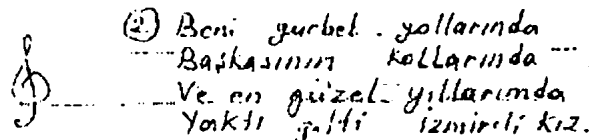 2. Beni gurbet yollarında
Başkasının kollarında
Ve en güzel yıllarında
Yaktı gitti izmirli kız.